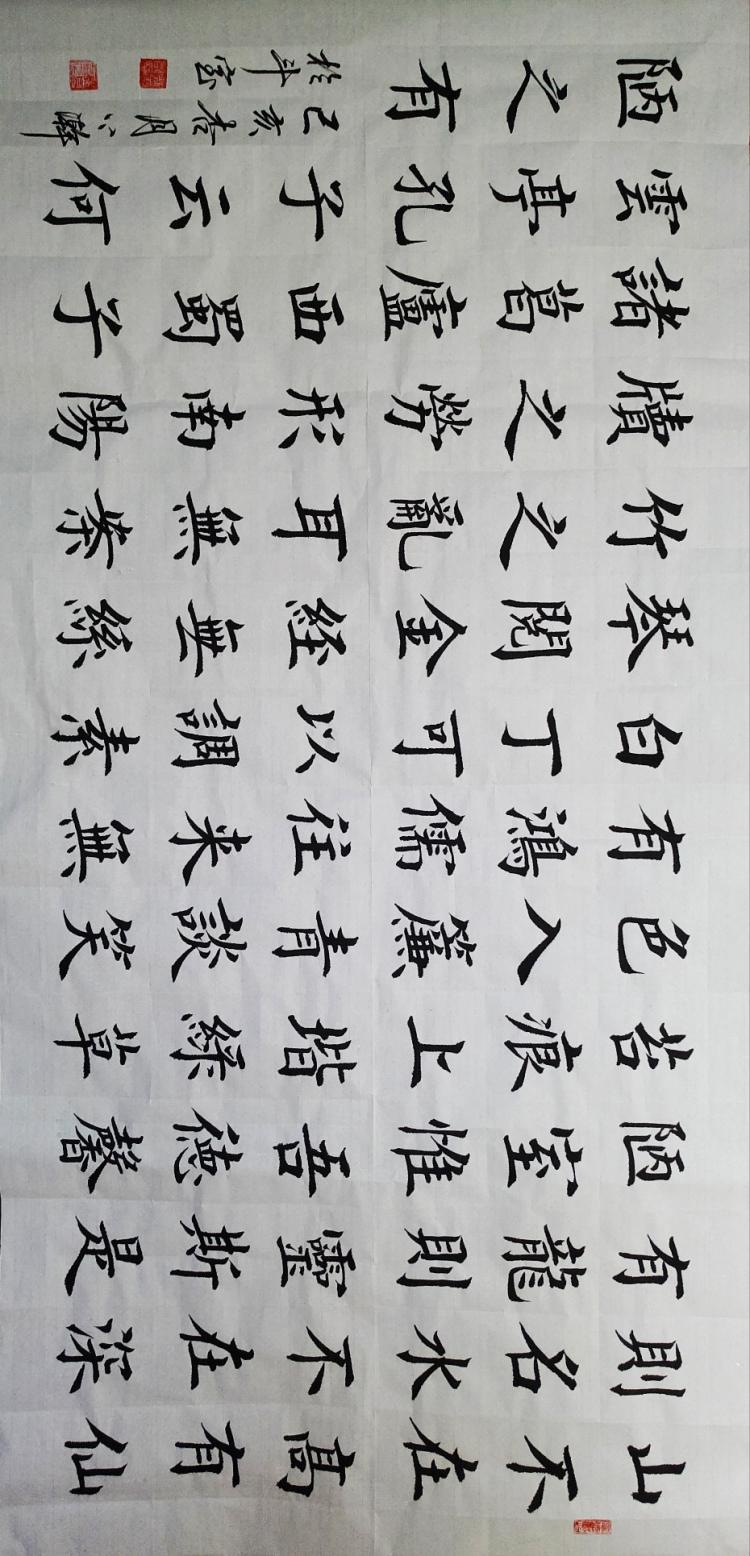 山不在高有仙
則名水不在深
有龍則靈斯是
陋室惟吾德馨
苔痕上堦綠草
色入簾青談笑
有鴻儒往来無
白丁可以調素
琴閱金経無絲
竹之亂耳無案
牘之勞形南陽
諸葛廬西蜀子
雲亭孔子云何
陋之有
己亥春月
於斗室